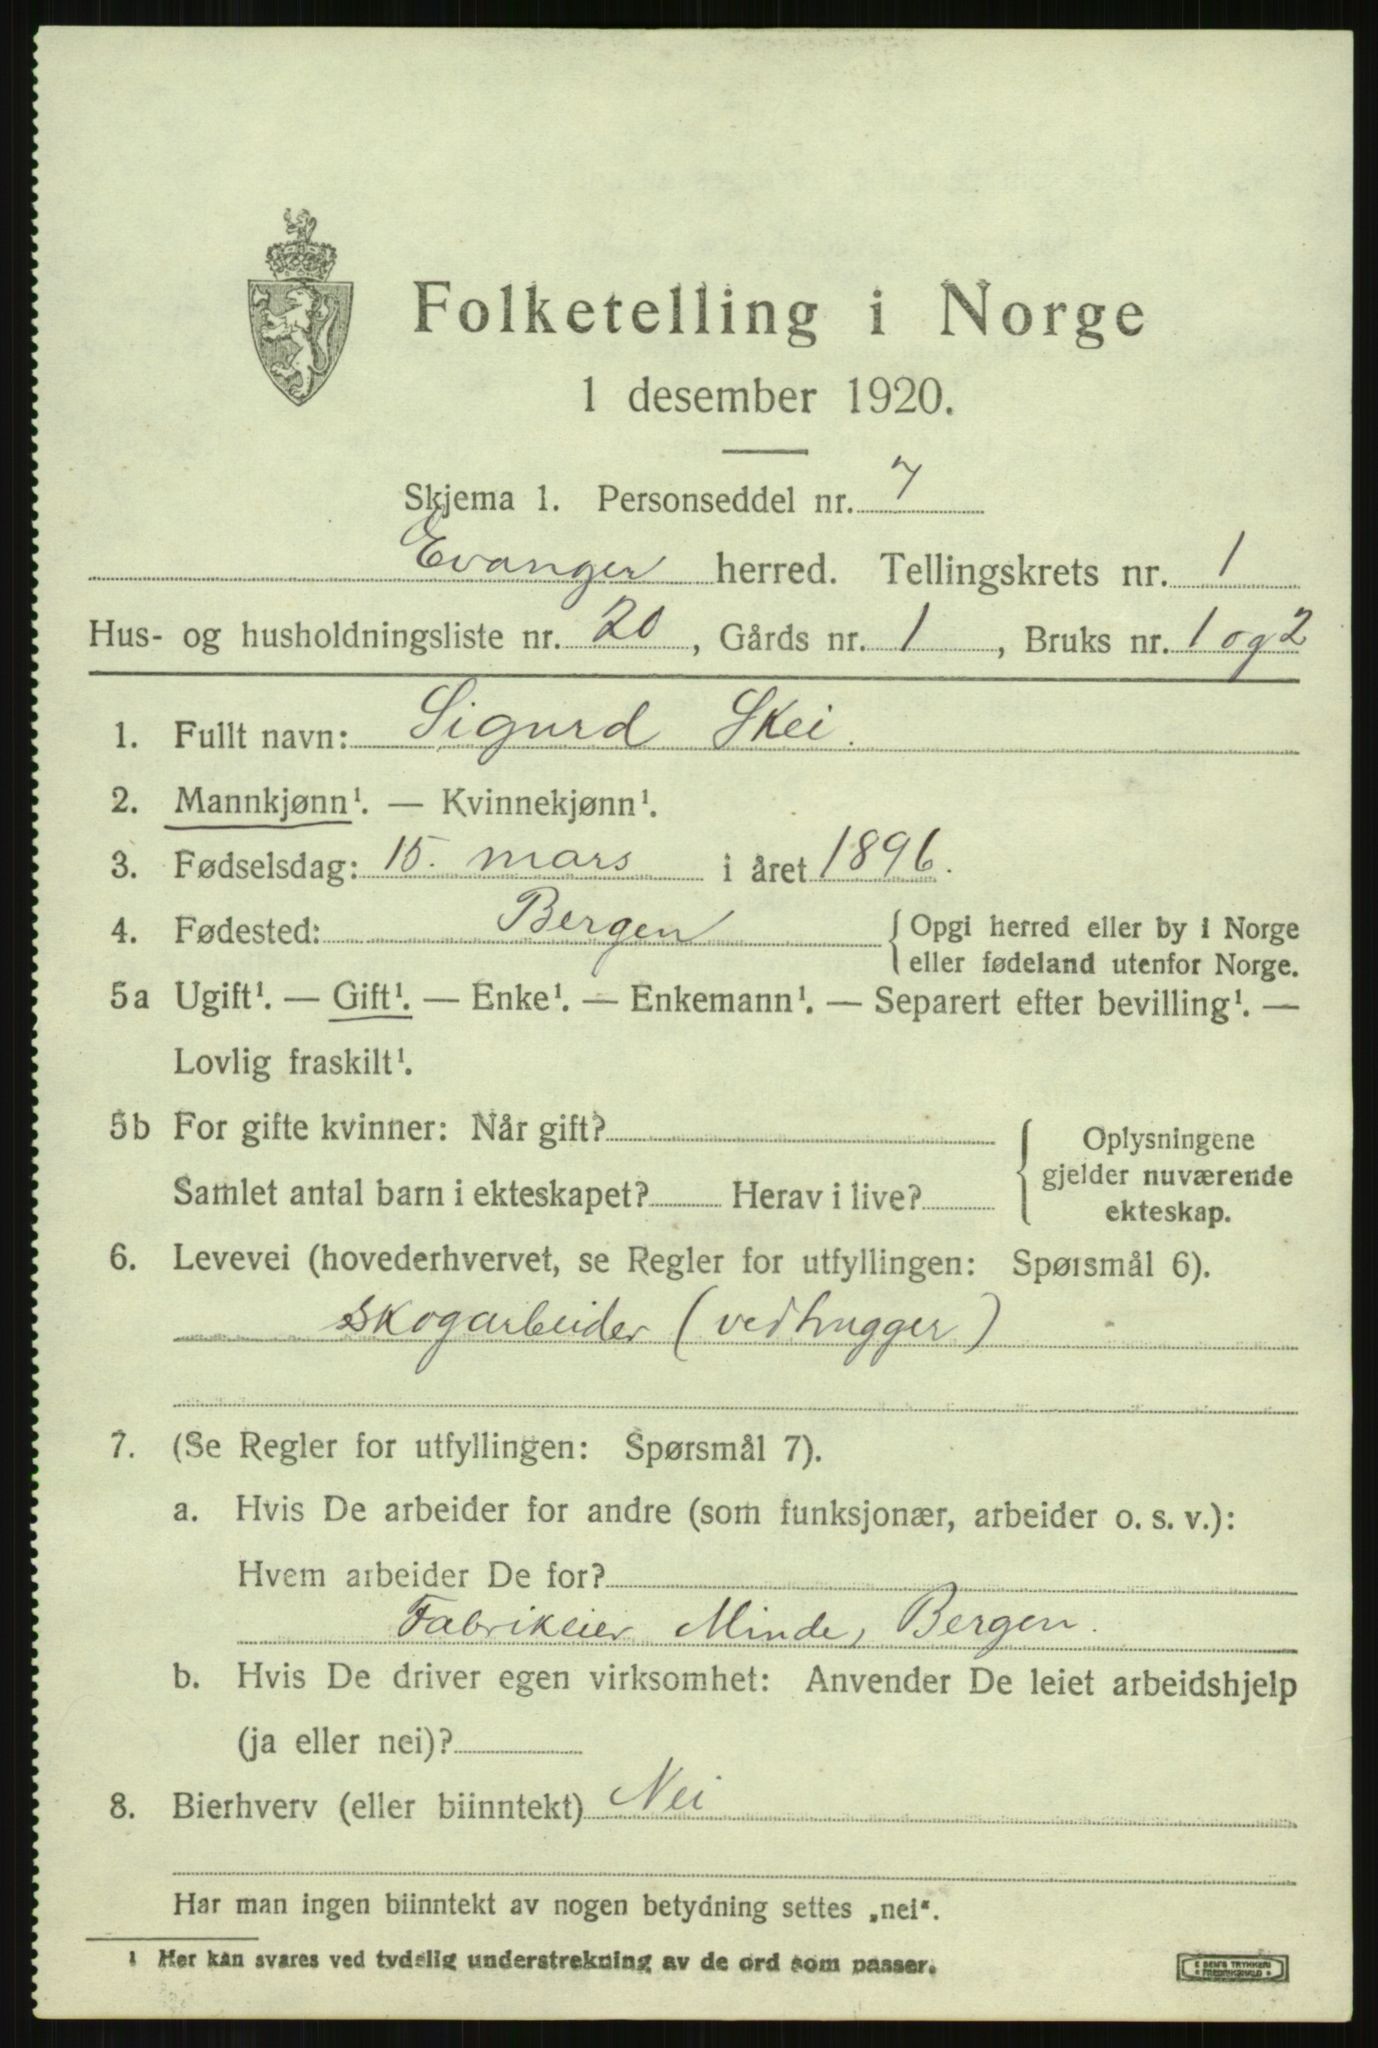 Folketelling i Norge
1 desember 1920.
Skjema 1. Personseddel nr. 7
Evanger herred. Tellingskrets nr. 1
Hus- og husholdningsliste nr. 20, Gårds nr. 1, Bruks nr. 1 og 2
1. Fullt navn: Sigurd Skei.
2. Mannkjønn¹. — Kvinnekjønn¹.
3. Fødselsdag: 15. mars i året 1896.
4. Fødested: Bergen { Opgi herred eller by i Norge
eller fødeland utenfor Norge.
5a Ugift¹. — Gift¹. — Enke¹. — Enkemann¹. — Separert efter bevilling¹. —
Lovlig fraskilt¹.
5b For gifte kvinner: Når gift?
Samlet antal barn i ekteskapet? Herav i live?
{ Oplysningene
gjelder nuværende
ekteskap.
6. Levevei (hovederhvervet, se Regler for utfyllingen: Spørsmål 6).
skogarbeider (vedhugger)
7. (Se Regler for utfyllingen: Spørsmål 7).
a. Hvis De arbeider for andre (som funksjonær, arbeider o. s. v.):
Hvem arbeider De for?
Fabrikeier Minde, Bergen.
b. Hvis De driver egen virksomhet: Anvender De leiet arbeidshjelp
(ja eller nei)?
8. Bierhverv (eller biinntekt) Nei
Har man ingen biinntekt av nogen betydning settes „nei“.
¹ Her kan svares ved tydelig understrekning av de ord som passer.